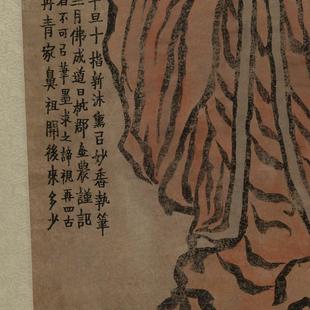 旦十指新沐薰㠯妙香執筆
月佛成道日杭郡金農謹記
不可㠯筆墨求之諦視再四古
青家鼻祖開後來多少